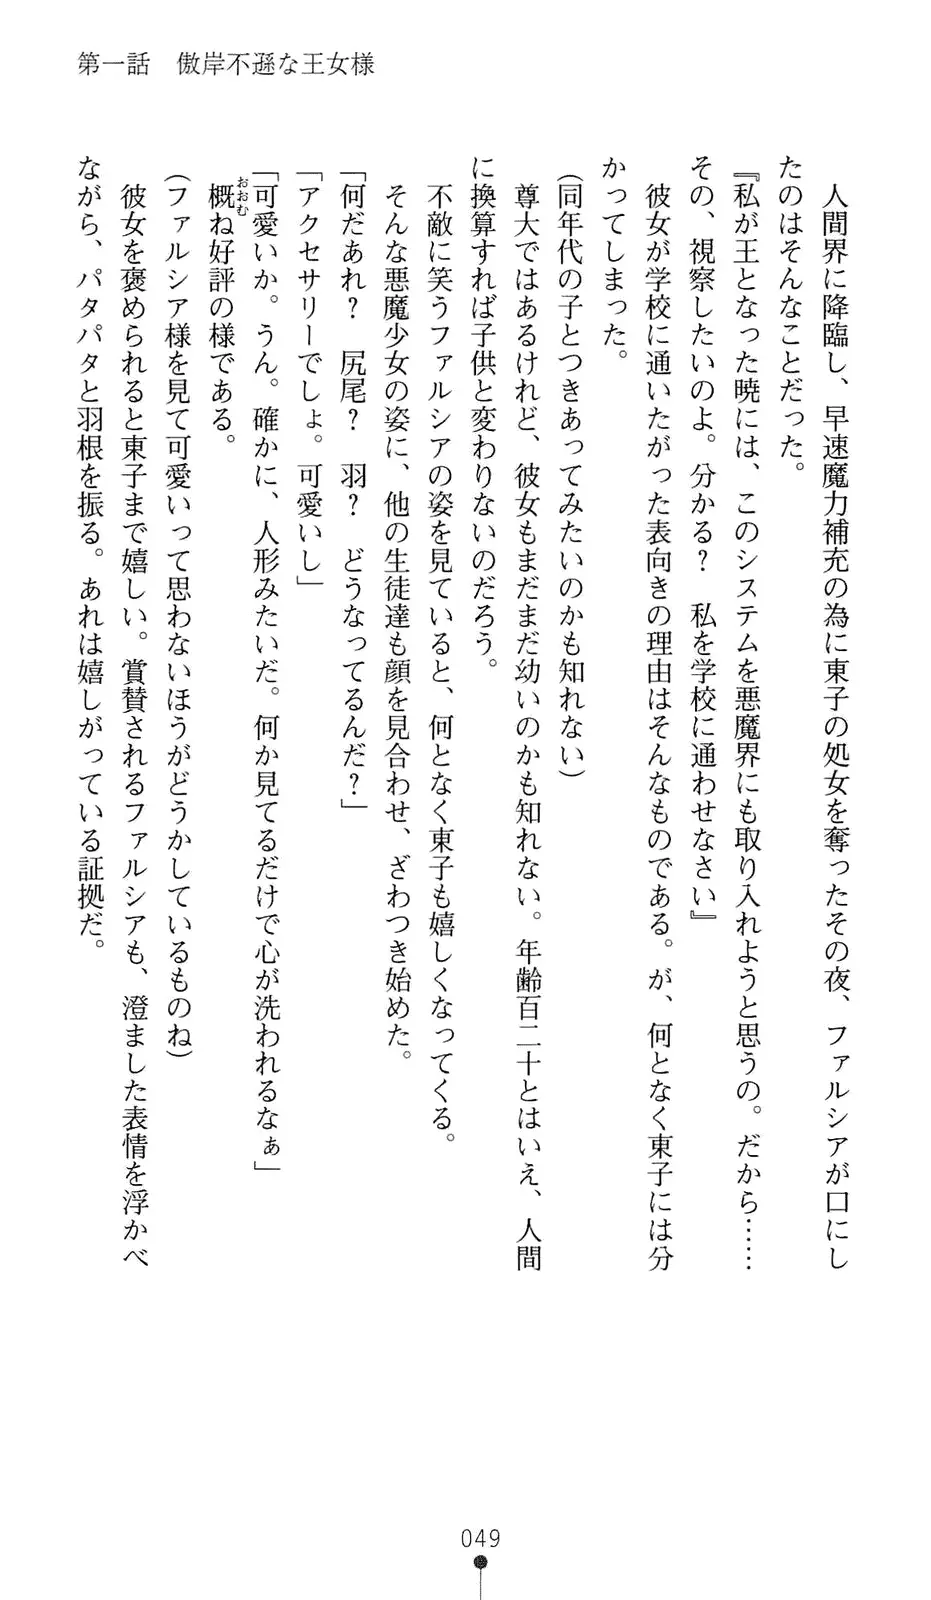 第一話　傲岸不遜な王女様
　人間界に降臨し、早速魔力補充の為に東子の処女を奪ったその夜、ファルシアが口にし
たのはそんなことだった。
『私が王となった暁には、このシステムを悪魔界にも取り入れようと思うの。だから……
その、視察したいのよ。分かる？　私を学校に通わせなさい』
　彼女が学校に通いたがった表向きの理由はそんなものである。が、何となく東子には分
かってしまった。
（同年代の子とつきあってみたいのかも知れない）
　尊大ではあるけれど、彼女もまだまだ幼いのかも知れない。年齢百二十とはいえ、人間
に換算すれば子供と変わりないのだろう。
　不敵に笑うファルシアの姿を見ていると、何となく東子も嬉しくなってくる。
　そんな悪魔少女の姿に、他の生徒達も顔を見合わせ、ざわつき始めた。
「何だあれ？　尻尾？　羽？　どうなってるんだ？」
「アクセサリーでしょ。可愛いし」
「可愛いか。うん。確かに、人形みたいだ。何か見てるだけで心が洗われるなぁ」
　概おおむね好評の様である。
（ファルシア様を見て可愛いって思わないほうがどうかしているものね）
　彼女を褒められると東子まで嬉しい。賞賛されるファルシアも、澄ました表情を浮かべ
ながら、パタパタと羽根を振る。あれは嬉しがっている証拠だ。
049